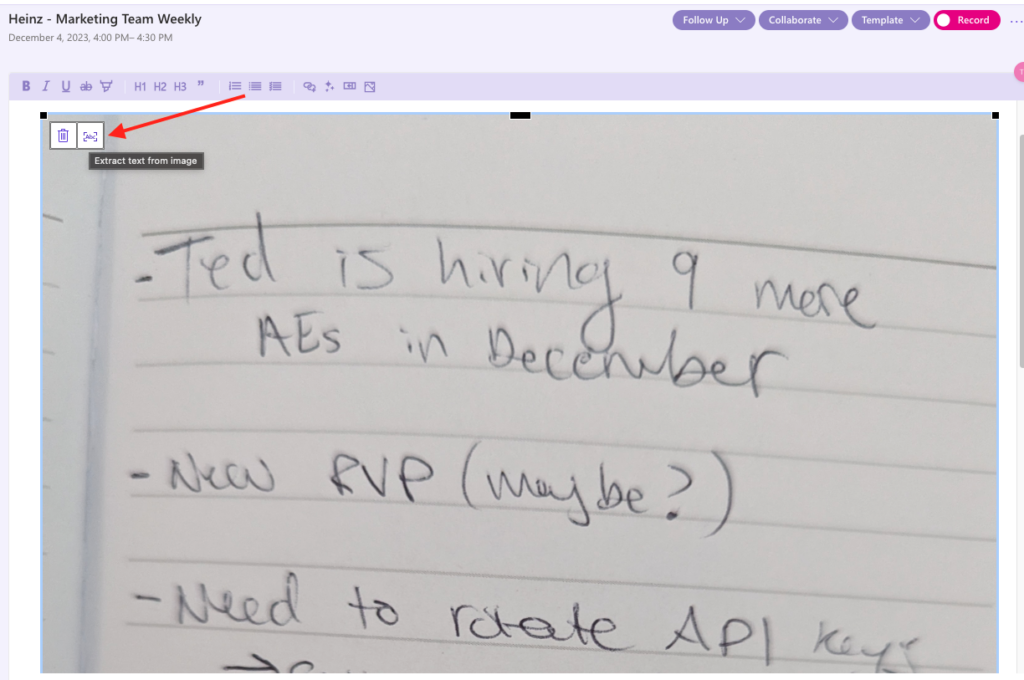 Heinz - Marketing Team Weekly
Follow Up Collaborate Template Record
December 4, 2023, 4:00 PM– 4:30 PM
B I U ab H1 H2 H3 "
Abc
Extract text from image
- Ted is hiring 9 more
AEs in December
- New RVP (maybe?)
- Need to rotate API keys
→